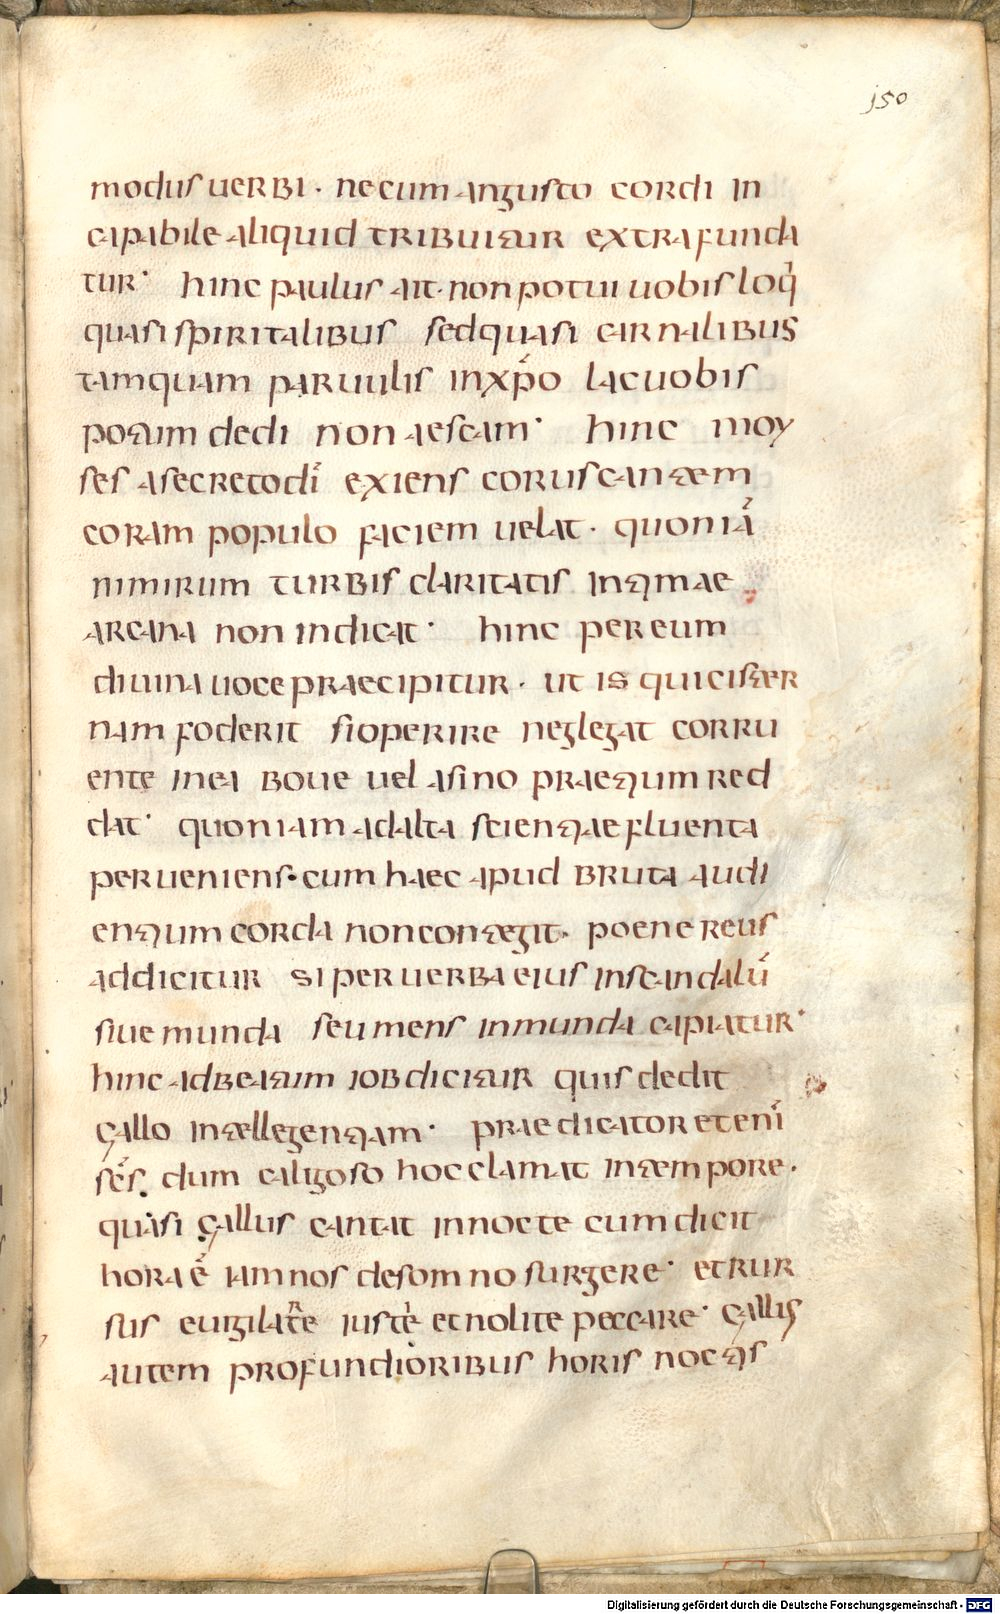 150
modus uerbi · ne cum angusto cordi in
capabile aliquid tribuitur extra funda
tur· hinc paulus ait· non potui uobis loq̄
quasi spiritalibus sed quasi carnalibus
tamquam paruulis in xp̄o lac uobis
potum dedi non aescam· hinc moy
ses a secreto dī exiens coruscantem
coram populo faciem uelat · quoniā
nimirum turbis claritatis intimae
arcana non indicat· hinc per eum
diuina uoce praecipitur · ut is qui cister
nam foderit si operire neglegat corru
ente in ea boue uel asino praetium red
dat· quoniam ad alta scientiae fluenta
perueniens· cum haec apud bruta audi
entium corda non contegit· poene reus
addicitur si per uerba eius in scandalū
siue munda seu mens inmunda capiatur·
hinc ad beatum iob dicitur quis dedit
gallo intellegentiam· praedicator etenī
sc̄s. dum caligoso hoc clamat in tempore·
quasi gallus cantat in nocte cum dicit
hora ē iam nos de somno surgere· et rur
sus euigilate iuste et nolite peccare· gallus
autem profundioribus horis noctis
Digitalisierung gefördert durch die Deutsche Forschungsgemeinschaft - DFG